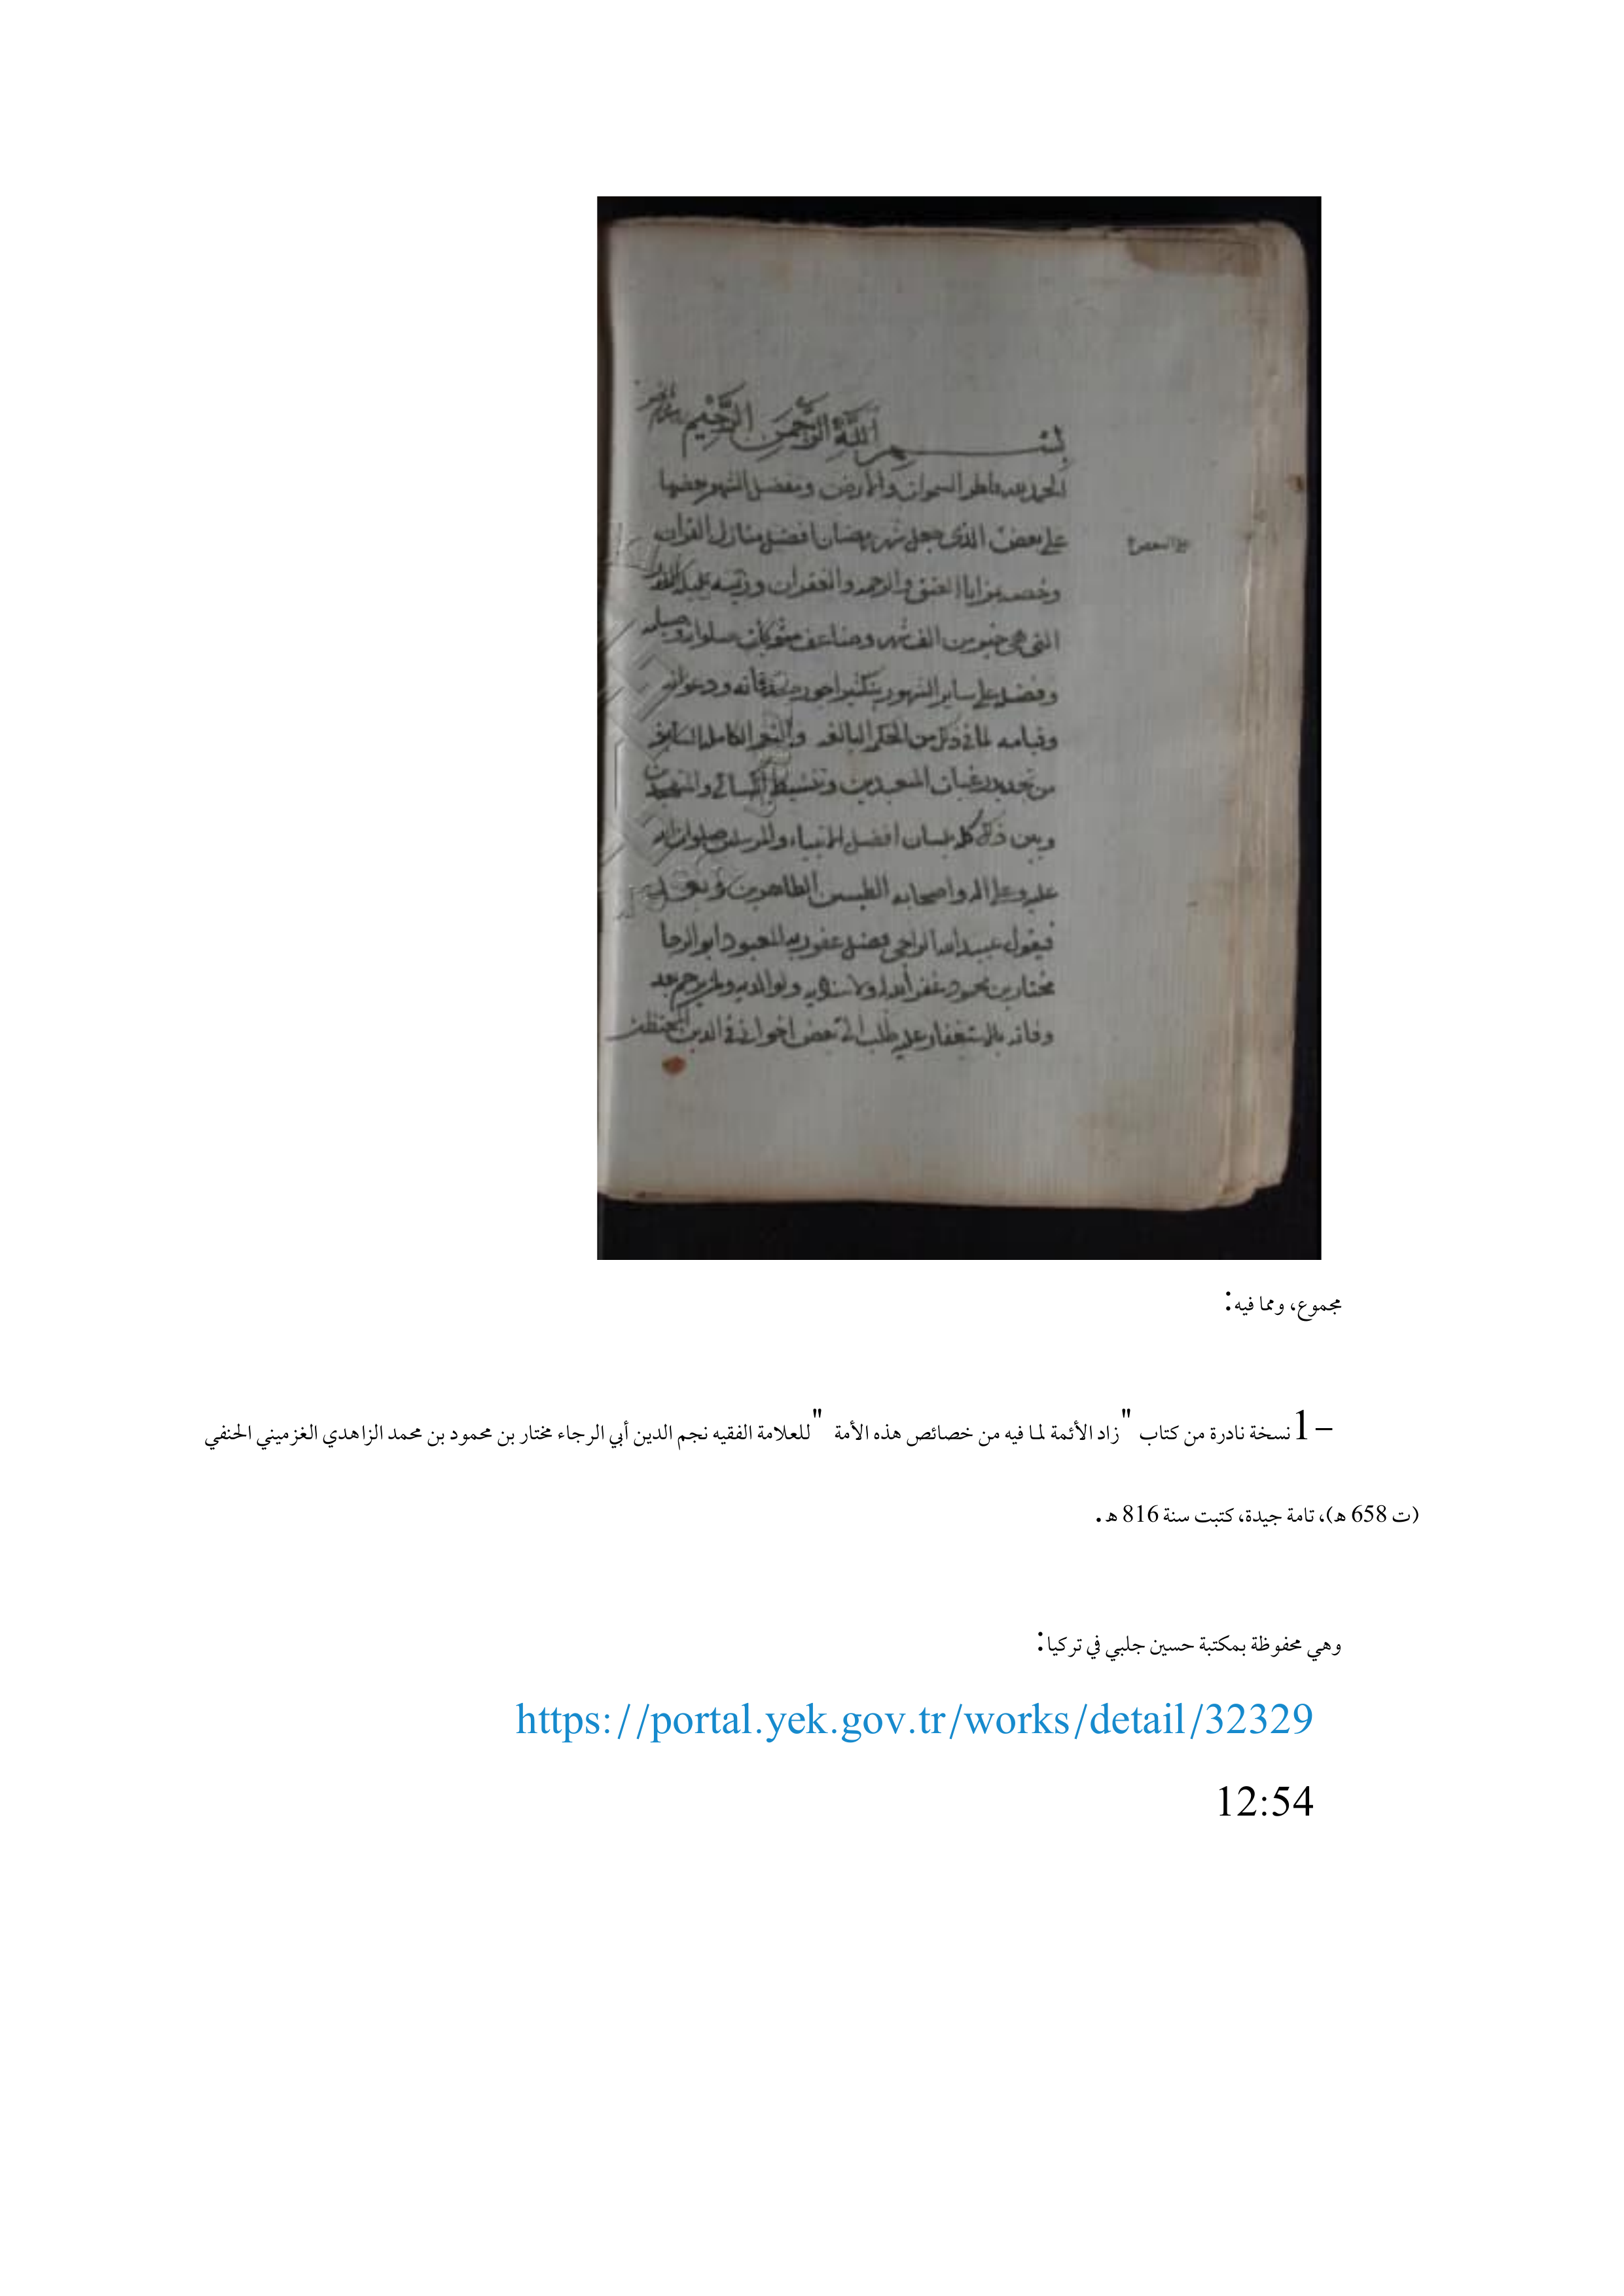 بسم الله الرحمن الرحيم
الحمد لله فاطر السموات والارض ومفضل الشهور بعضها
على بعض الذى جعل شهر رمضان افضل منازل القران
وخصه بمزايا العتق والرحمه والغفران وزينه بليله القدر
التى هى خير من الف شهر وضاعف مثوبات صلواته
وفضله على ساير الشهور بتكثير اجور صدقاته ودعواته
وقيامه لما فى ذلك من الحكم البالغه والنعم الكامله السابغه
من تجديد رغبات المتعبدين وتنشيط الكسالى
وبين ذلك كله بلسان افضل الانبياء والمرسلين صلوات الله
عليه وعلى اله واصحابه الطيبين الطاهرين وبعد
فيقول عبيد الله الراجى فضل عفو ربه المعبود ابو الرجا
مختار بن محمود غفر الله له ولاستاديه ولوالديه ولمن يرحم بعد
وفاته بالاستغفار عليه طلب الى بعض اخوانى فى الدين
مجموع، ومما فيه:
1– نسخة نادرة من كتاب "زاد الأئمة لما فيه من خصائص هذه الأمة" للعلامة الفقيه نجم الدين أبي الرجاء مختار بن محمود بن محمد الزاهدي الغزميني الحنفي
(ت 658 هـ)، تامة جيدة، كتبت سنة 816 هـ.
وهي محفوظة بمكتبة حسين جلبي في تركيا:
https://portal.yek.gov.tr/works/detail/32329
12:54